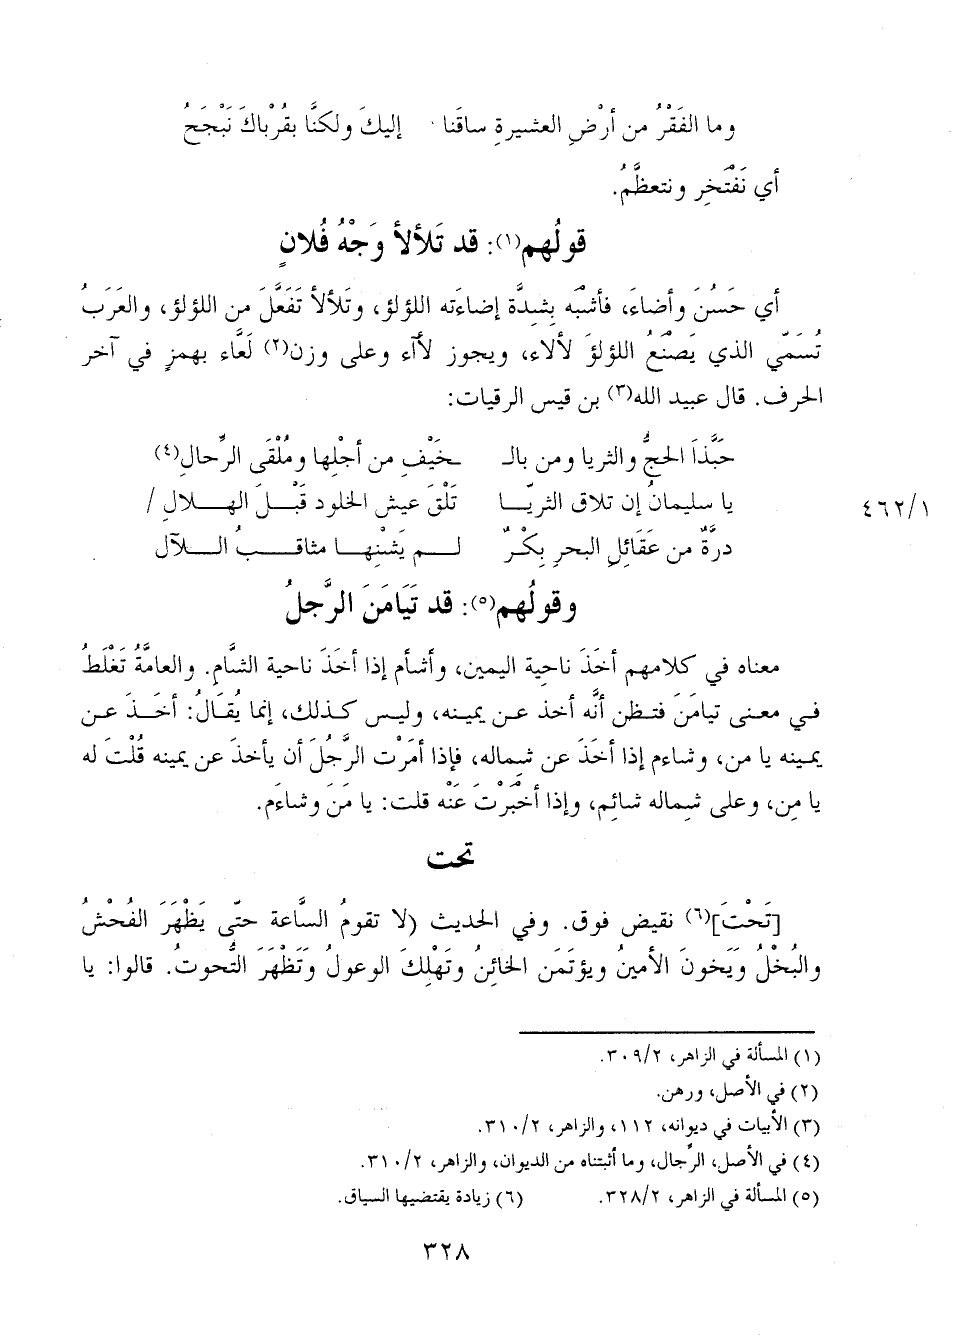 وما الفَقْرُ من أرْضِ العشيرةِ ساقَنا إليكَ ولكنَّا بقُرْباكَ نَبْجَحُ
أي نَفْتَخِر ونتعظَّمُ.
قولُهم(١): قد تَلألأ وَجْهُ فُلانٍ
أي حَسُنَ وأضاءَ، فأشْبَه بِشِدَّة إضاءَته اللؤلؤ، وتَلألأ تَفَعْلَلَ من اللؤلؤ، والعَرَبُ
تُسَمّي الذي يَصْنَعُ اللؤلؤَ لألاء، ويجوز لأآء وعلى وزن(٢) لَعَّاء بهمزٍ في آخر
الحرف. قال عبيد الله(٣) بن قيس الرقيات:
حَبَّذَا الحجُّ والثريا ومن بالـ ـخَيْفِ من أجْلِها ومُلْقَى الرِّحالِ(٤)
يا سليمانُ إن تلاق الثريّـا تَلْقَ عيش الخلود قَبْـلَ الهـلالِ /
٤٦٢/١
درَّةٌ من عَقَائِلِ البحرِ بِكْـرٌ لـم يَشِنْهـا مثاقـبُ الـلآل
وقولُهم(٥): قد تَيَامَنَ الرَّجلُ
معناه في كلامهم أخَذَ ناحية اليمين، وأشأم إذا أخَذَ ناحية الشَّام. والعامَّةُ تَغْلَطُ
فـي معنى تيامَنَ فتظن أنَّه أخذ عـن يمينه، وليس كـذلك، إنما يُقـالُ: أخَـذَ عـن
يمينه يا من، وشاءم إذا أخَذَ عن شماله، فإذا أمَرْت الرَّجُلَ أن يأخذَ عن يمينه قُلْتَ له
يا مِن، وعلى شِماله شائِم، وإذا أخْبَرْتَ عَنْه قلت: يا مَنَ وشاءَم.
تحت
[تَحْتَ](٦) نقيض فوق. وفي الحديث (لا تقومُ السَّاعة حتّى يَظْهَرَ الفُحْشُ
والبُخْلُ وَيَخونَ الأمينُ ويؤتَمَن الخائِنُ وتَهْلِكَ الوعولُ وتَظْهَرَ التُّحوتُ. قالوا: يا
(١) المسألة في الزاهر، ٣٠٩/٢.
(٢) في الأصل، ورهن.
(٣) الأبيات في ديوانه، ١١٢، والزاهر، ٣١٠/٢.
(٤) في الأصل، الرِّجال، وما أثبتناه من الديوان، والزاهر، ٣١٠/٢.
(٥) المسألة في الزاهر، ٣٢٨/٢. (٦) زيادة يقتضيها السياق.
٣٢٨